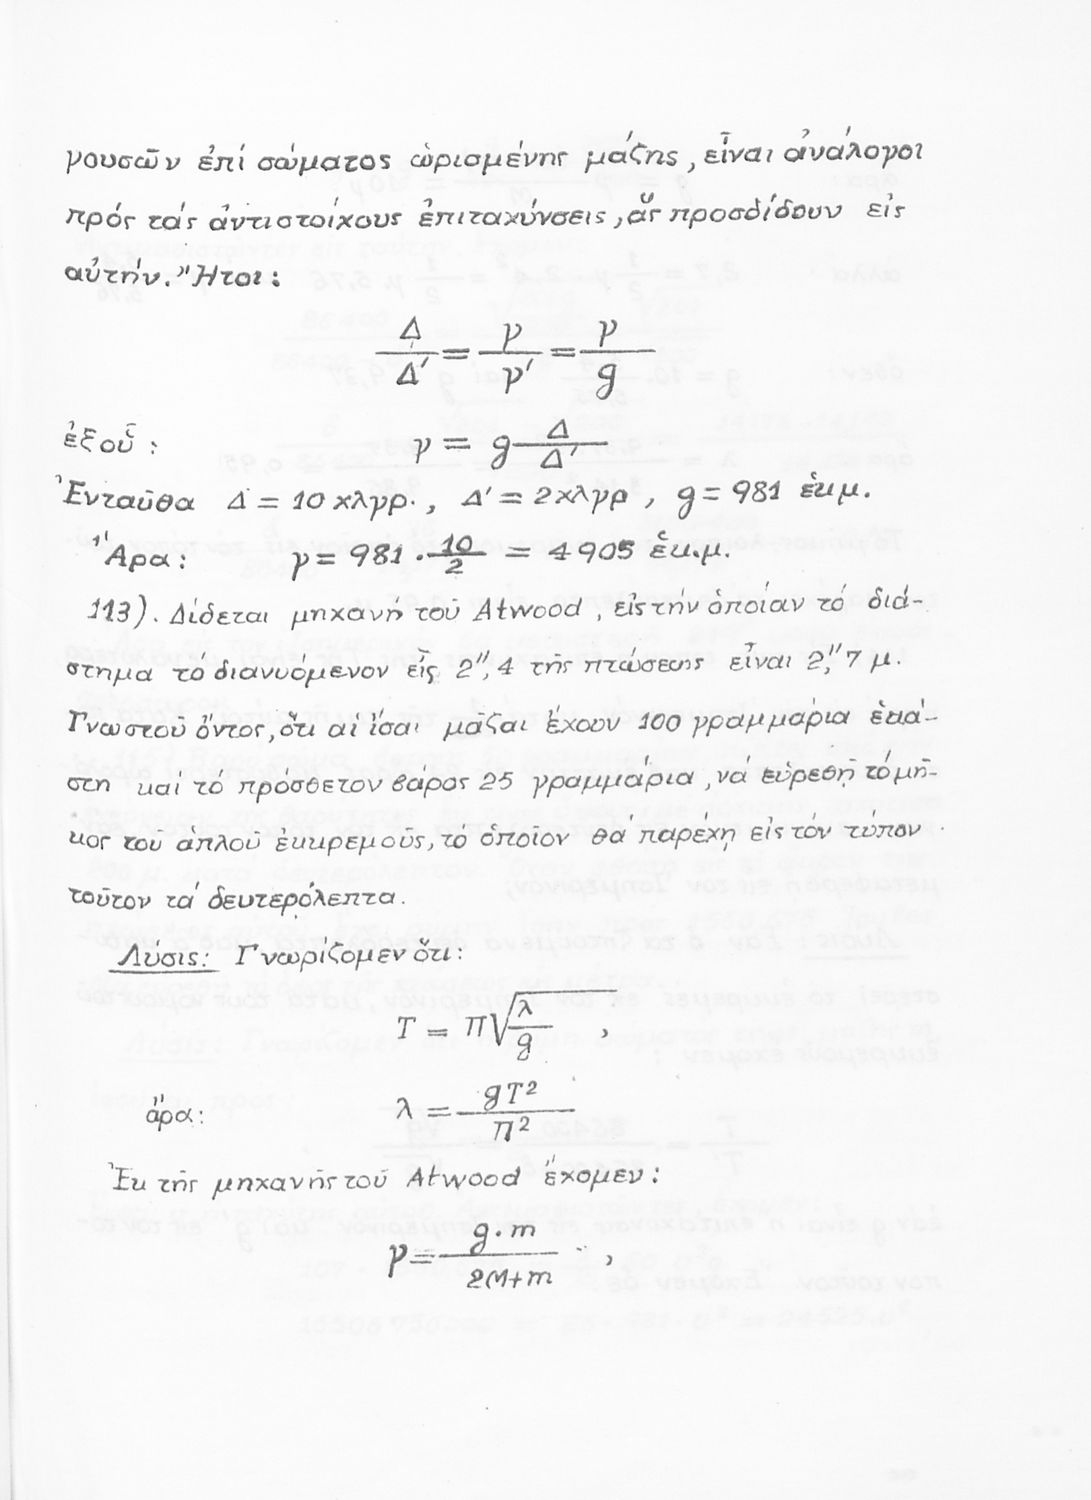 γουσῶν ἐπί σώματος ὡρισμένης μάζης, εἶναι ἀνάλογοι
πρός τάς ἀντιστοίχους ἐπιταχύνσεις, ἅς προσδίδουν εἰς
αὐτήν." Ἤτοι:
Δ/Δ' = γ/γ' = γ/g
ἐξοὗ: γ = g Δ/Δ'
Ἐνταῦθα Δ = 10 χλγρ., Δ' = 2χλγρ, g = 981 ἑκμ.
Ἄρα: γ = 981 · 10/2 = 4905 ἑκ.μ.
113). Δίδεται μηχανή τοῦ Atwood, εἰς τήν ὁποίαν τό διά-
στημα τό διανυόμενον εἰς 2",4 τῆς πτώσεως εἶναι 2,"7 μ.
Γνωστοῦ ὄντος, ὅτι αἱ ἴσαι μᾶζαι ἔχουν 100 γραμμάρια ἑκά-
στη καί τό πρόσθετον βάρος 25 γραμμάρια, νά εὑρεθῇ τό μῆ-
κος τοῦ ἁπλοῦ ἐκκρεμοῦς, τό ὁποῖον θά παρέχῃ εἰς τόν τόπον
τοῦτον τά δευτερόλεπτα.
Λύσις: Γνωρίζομεν ὅτι:
T = π√λ/g ,
ἄρα: λ = gT²/π²
Ἐκ τῆς μηχανῆς τοῦ Atwood ἔχομεν:
γ = g·m/2M+m ,